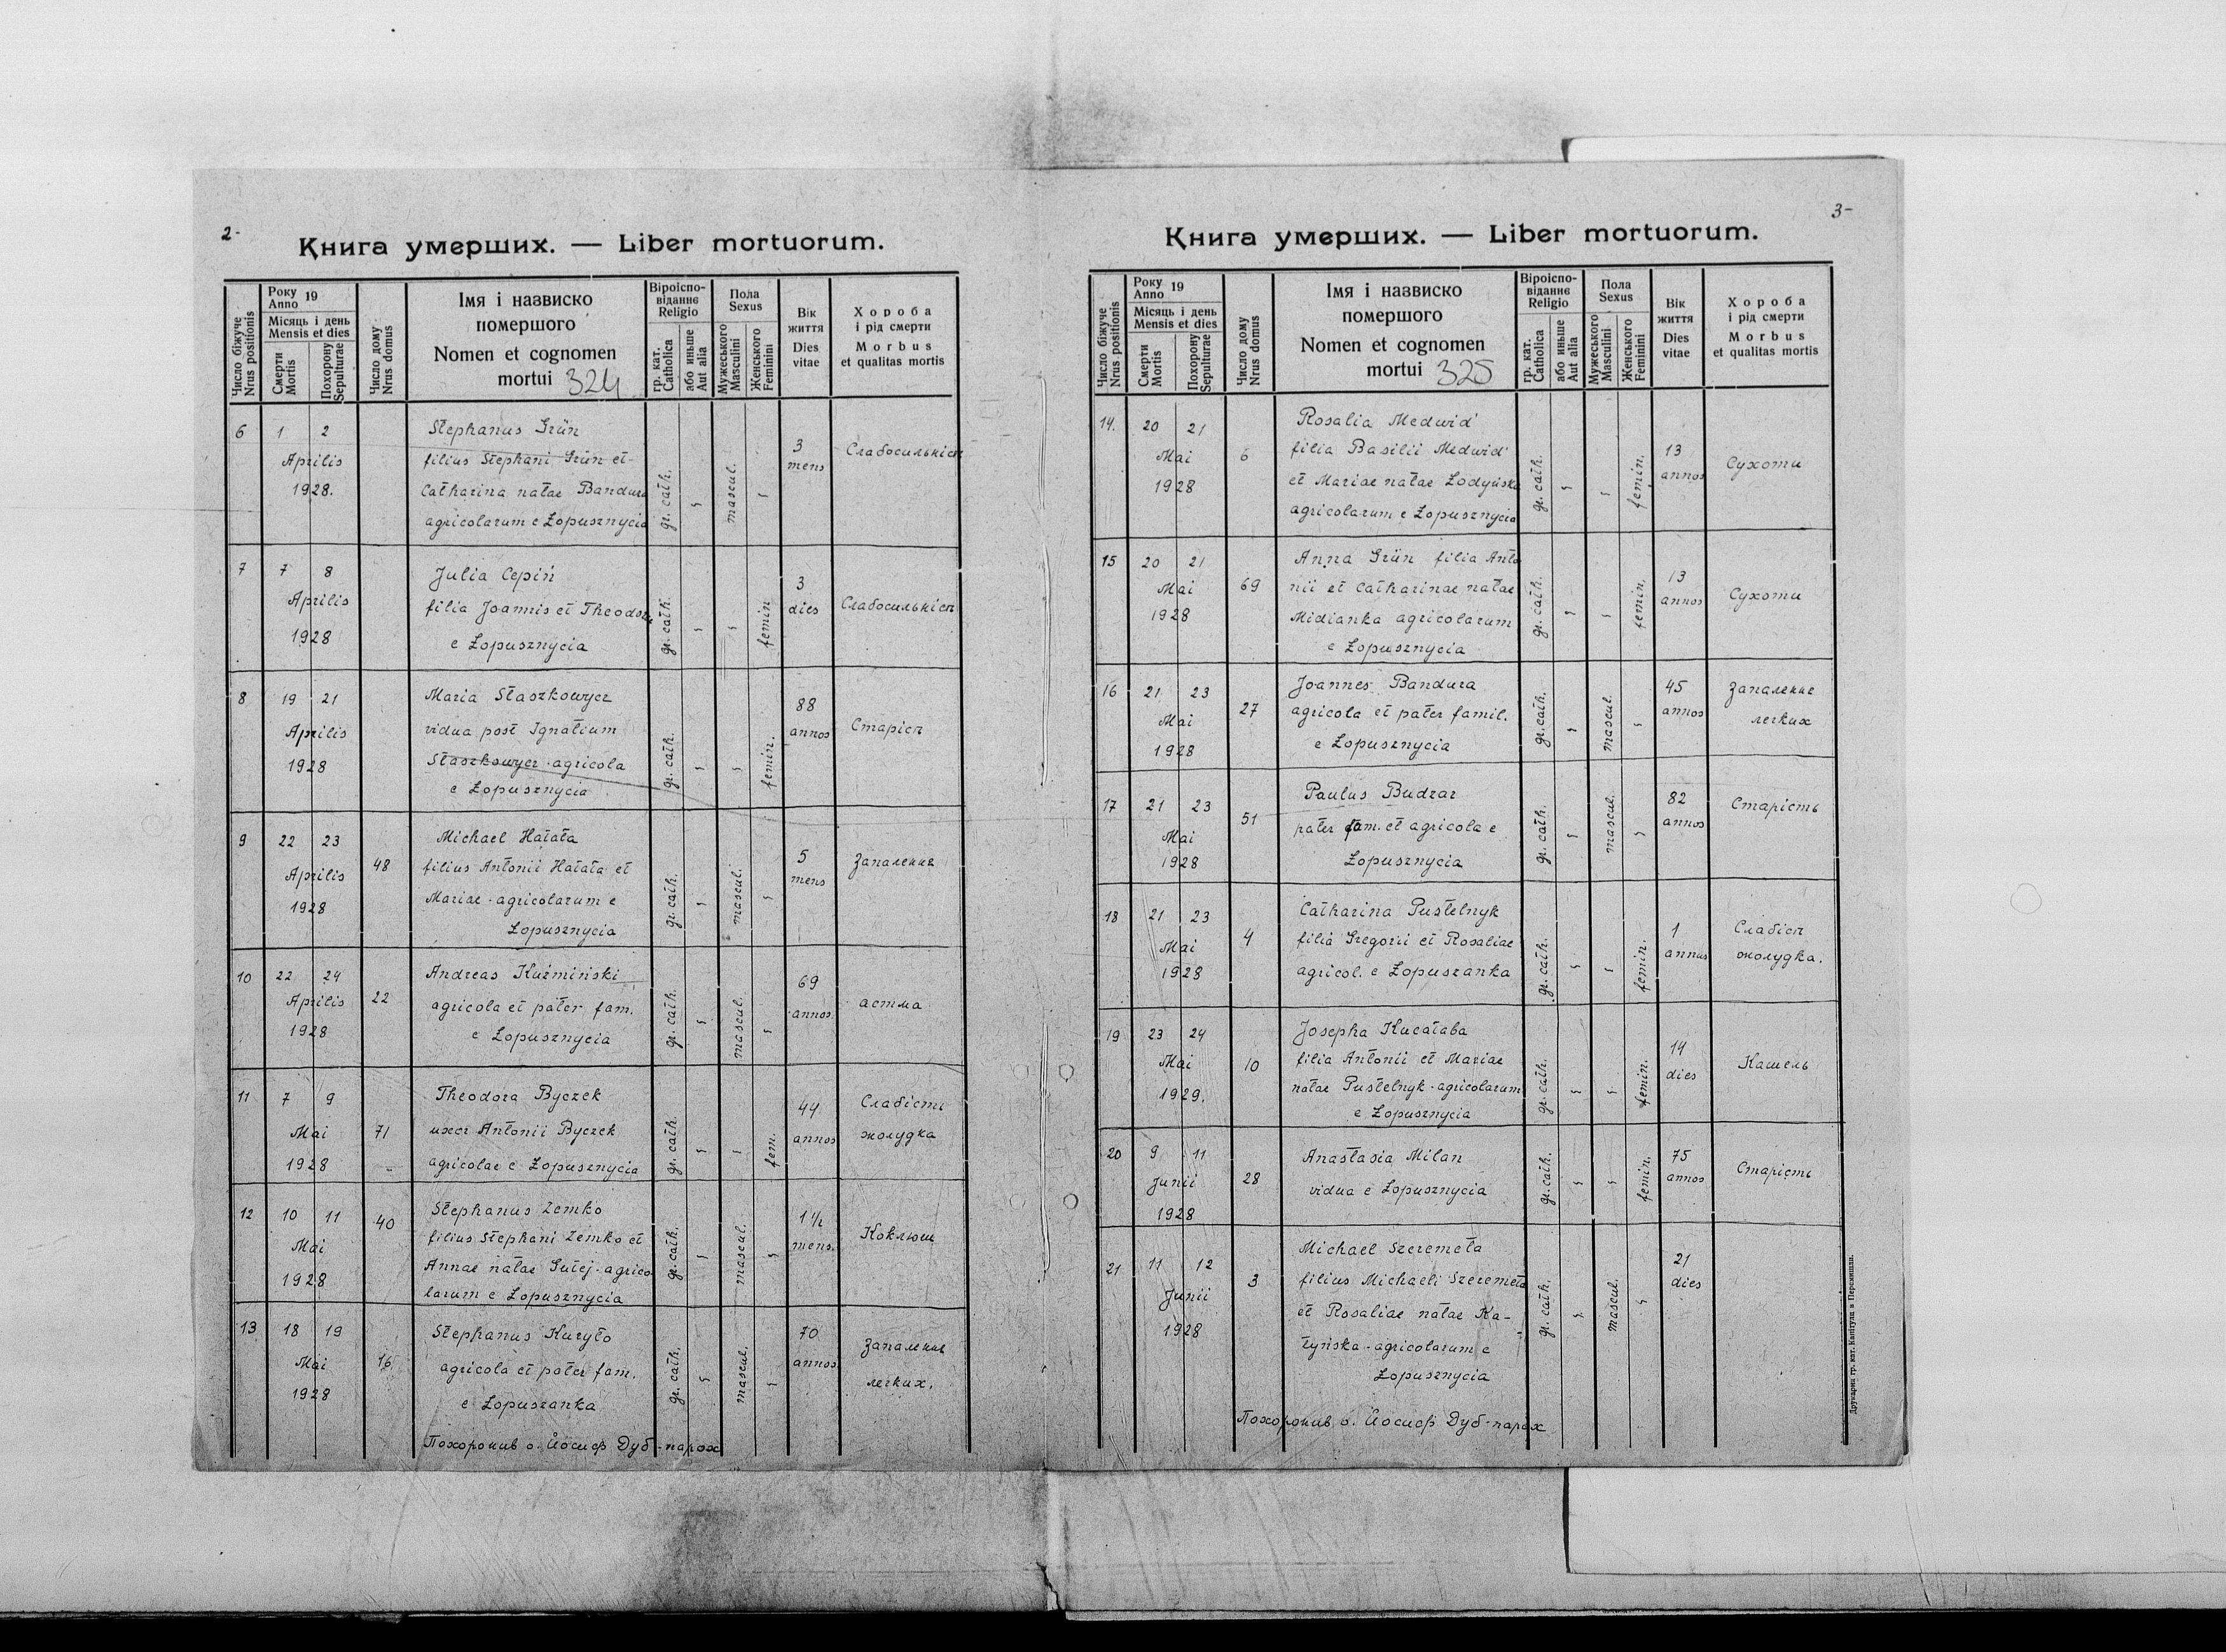 2-
Книга умерших. — Liber mortuorum.
Число біжуче
Nrus positionis
Року
Anno 19
Місяць і день
Mensis et dies
Смерти
Mortis
Похорону
Sepulturae
Число дому
Nrus domus
Імя і назвиско
помершого
Nomen et cognomen
mortui 324
Віроіспо-
віданнє
Religio
гр. кат.
Catholica
або иньше
Aut alia
Пола
Sexus
Мужеського
Masculini
Женського
Feminini
Вік
життя
Dies
vitae
Хороба
і рід смерти
Morbus
et qualitas mortis
6 1 2
Aprilis
1928.
Stephanus Grün
filius Stephani Grün et
Catharina natae Bandura
agricolarum e Łopusznycia
gr. cath.
mascul.
3
mens
Слабосильніст
7 7 8
Aprilis
1928
Julia Cepiń
filia Joannis et Theodora
e Łopusznycia
gr. cath.
femin
3
dies
Слабосильніст
8 19 21
Aprilis
1928
Maria Staszkowyer
vidua post Ignatium
Staszkowyer - agricola
e Łopusznycia
gr. cath.
femin.
88
annos
Старіст
9 22 23
Aprilis
1928
48
Michael Hałata
filius Antonii Hałata et
Mariae - agricolarum e
Łopusznycia
gr. cath.
mascul.
5
mens
Запаленнє
10 22 24
Aprilis
1928
22
Andreas Kuźmiński
agricola et pater fam.
e Łopusznycia
gr. cath.
mascul.
69
annos
астма
11 7 9
Mai
1928
71
Theodora Byczek
uxor Antonii Byczek
agricolae e Łopusznycia
gr. cath.
fem.
44
annos
Слабість
жолудка
12 10 11
Mai
1928
40
Stephanus Zemko
filius Stephani Zemko et
Annae natae Gutej - agrico
larum e Łopusznycia
gr. cath.
mascul.
1 1/2
mens.
Коклюш
13 18 19
Mai
1928
16
Stephanus Kuryło
agricola et pater fam.
e Łopuszanka
gr. cath.
mascul.
70
annos
Запаленнє
легких.
Похоронив о. Йосиф Дуб - парох
3-
Книга умерших. — Liber mortuorum.
Число біжуче
Nrus positionis
Року
Anno 19
Місяць і день
Mensis et dies
Смерти
Mortis
Похорону
Sepulturae
Число дому
Nrus domus
Імя і назвиско
помершого
Nomen et cognomen
mortui 325
Віроіспо-
віданнє
Religio
гр. кат.
Catholica
або иньше
Aut alia
Пола
Sexus
Мужеського
Masculini
Женського
Feminini
Вік
життя
Dies
vitae
Хороба
і рід смерти
Morbus
et qualitas mortis
14. 20 21
Mai
1928
6
Rosalia Medwid'
filia Basilii Medwid'
et Mariae natae Łodyńska
agricolarum e Łopusznycia
gr. cath.
femin.
13
annos
Сухоти
15 20 21
Mai
1928
69
Anna Grün filia Anto
nii et Catharinae natae
Midianka agricolarum
e Łopusznycia
gr. cath.
femin.
13
annos
Сухоти
16 21 23
Mai
1928
27
Joannes Bandura
agricola et pater famil.
e Łopusznycia
gr. cath.
mascul.
45
annos
Запаленнє
легких
17 21 23
Mai
1928
51
Paulus Budzar
pater fam. et agricola e
Łopusznycia
gr. cath.
mascul.
82
annos
Старість
18 21 23
Mai
1928
4
Catharina Pustelnyk
filia Gregorii et Rosaliae
agricol. e Łopuszanka
gr. cath.
femin.
1
annus
Слабіст
жолудка.
19 23 24
Mai
1929.
10
Josepha Kucałaba
filia Antonii et Mariae
natae Pustelnyk - agricolarum
e Łopusznycia
gr. cath.
femin.
14
dies
Кашель
20 9 11
Junii
1928
28
Anastasia Milan
vidua e Łopusznycia
gr. cath.
femin.
75
annos
Старість
21 11 12
Junii
1928
3
Michael Szeremeta
filius Michaeli Szeremeta
et Rosaliae natae Ka-
tyńska - agricolarum e
Łopusznycia
gr. cath.
mascul.
21
dies
Похоронив о. Йосиф Дуб - парох
Друкарня гр. кат. Капітули в Перемишли.